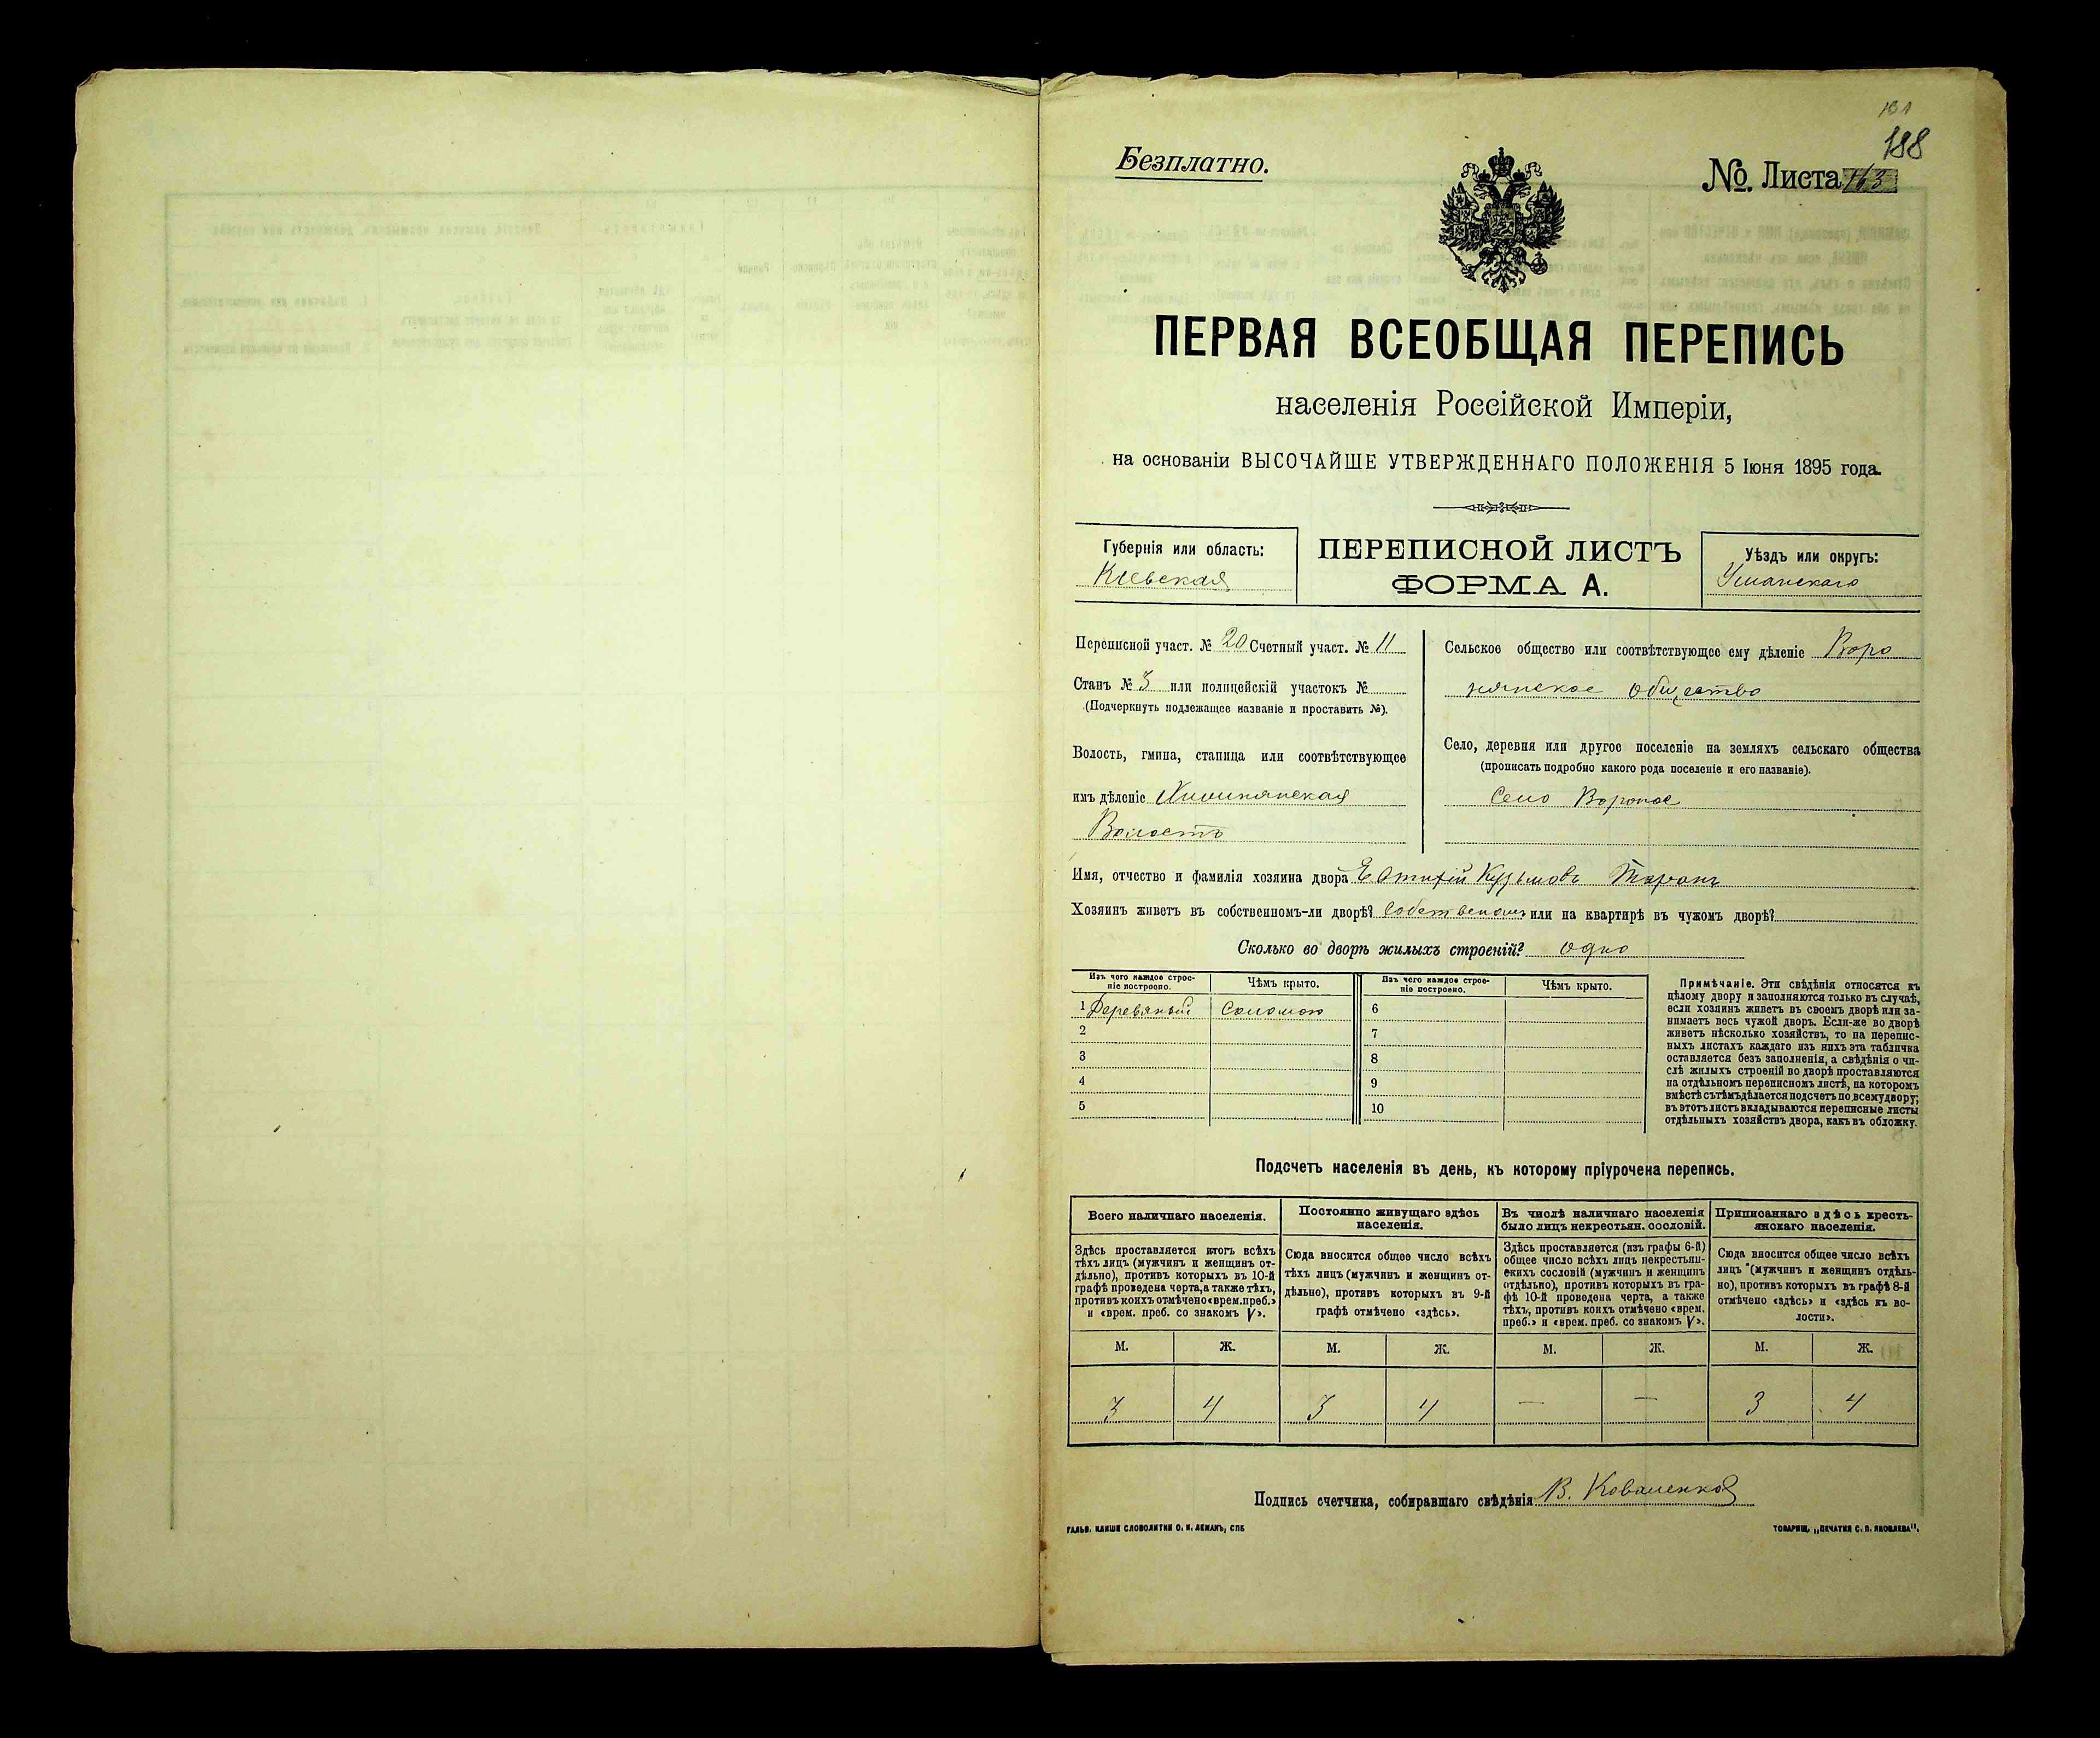 188
Безплатно.
№. Листа 163
ПЕРВАЯ ВСЕОБЩАЯ ПЕРЕПИСЬ
населенія Россійской Имперіи,
на основаніи ВЫСОЧАЙШЕ УТВЕРЖДЕННАГО ПОЛОЖЕНІЯ 5 Іюня 1895 года.
Губернія или область:
Кіевская
ПЕРЕПИСНОЙ ЛИСТЪ
ФОРМА А.
Уѣздъ или округъ:
Уманскаго
Переписной участ. № 20 Счетный участ. № 11
Станъ № 3 или полицейскій участокъ №
(Подчеркнуть подлежащее названіе и проставить №).
Волость, гмина, станица или соотвѣтствующее
имъ дѣленіе
Волость
Сельское общество или соотвѣтствующее ему дѣленіе Воро
нянское общество
Село, деревня или другое поселеніе на земляхъ сельскаго общества
(прописать подробно какого рода поселеніе и его названіе).
Село Вороное
Имя, отчество и фамилія хозяина двора Кузьмовъ Таранъ
Хозяинъ живетъ въ собственномъ-ли дворѣ? или на квартирѣ въ чужомъ дворѣ?
Сколько во дворѣ жилыхъ строеній? одно
Изъ чего каждое строе-
ніе построено.
Чѣмъ крыто.
Изъ чего каждое строе-
ніе построено.
Чѣмъ крыто.
1 Деревяный Соломою 6
2 7
3 8
4 9
5 10
Примѣчаніе. Эти свѣдѣнія относятся къ
цѣлому двору и заполняются только въ случаѣ,
если хозяинъ живетъ въ своемъ дворѣ или за-
нимаетъ весь чужой дворъ. Если-же во дворѣ
живетъ нѣсколько хозяйствъ, то на перепис-
ныхъ листахъ каждаго изъ нихъ эта табличка
оставляется безъ заполненія, а свѣдѣнія о чи-
слѣ жилыхъ строеній во дворѣ проставляются
на отдѣльномъ переписномъ листѣ, на которомъ
вмѣстѣ съ тѣмъ дѣлается подсчетъ по всему двору;
въ этотъ листъ вкладываются переписные листы
отдѣльныхъ хозяйствъ двора, какъ въ обложку.
Подсчетъ населенія въ день, къ которому пріурочена перепись.
Всего наличнаго населенія.
Здѣсь проставляется итогъ всѣхъ
тѣхъ лицъ (мужчинъ и женщинъ от-
дѣльно), противъ которыхъ въ 10-й
графѣ проведена черта, а также тѣхъ,
противъ коихъ отмѣчено «врем. преб.»
и «врем. преб. со знакомъ V».
Постоянно живущаго здѣсь
населенія.
Сюда вносится общее число всѣхъ
тѣхъ лицъ (мужчинъ и женщинъ от-
дѣльно), противъ которыхъ въ 9-й
графѣ отмѣчено «здѣсь».
Въ числѣ наличнаго населенія
было лицъ некрестьян. сословій.
Здѣсь проставляется (изъ графы 6-й)
общее число всѣхъ лицъ некрестьян-
скихъ сословій (мужчинъ и женщинъ
отдѣльно), противъ которыхъ въ гра-
фѣ 10-й проведена черта, а также
тѣхъ, противъ коихъ отмѣчено «врем.
преб.» и «врем. преб. со знакомъ V».
Приписаннаго здѣсь кресть-
янскаго населенія.
Сюда вносится общее число всѣхъ
лицъ (мужчинъ и женщинъ отдѣль-
но), противъ которыхъ въ графѣ 8-й
отмѣчено «здѣсь» и «здѣсь къ во-
лости».
М. Ж. М. Ж. М. Ж. М. Ж.
3 4 3 4 — — 3 4
Подпись счетчика, собиравшаго свѣдѣнія В. Коваленко
ГАЛЬВ. КЛИШЕ СЛОВОЛИТНИ О. И. ЛЕМАНЪ, СПБ
ТОВАРИЩ. „ПЕЧАТНЯ С. П. ЯКОВЛЕВА".